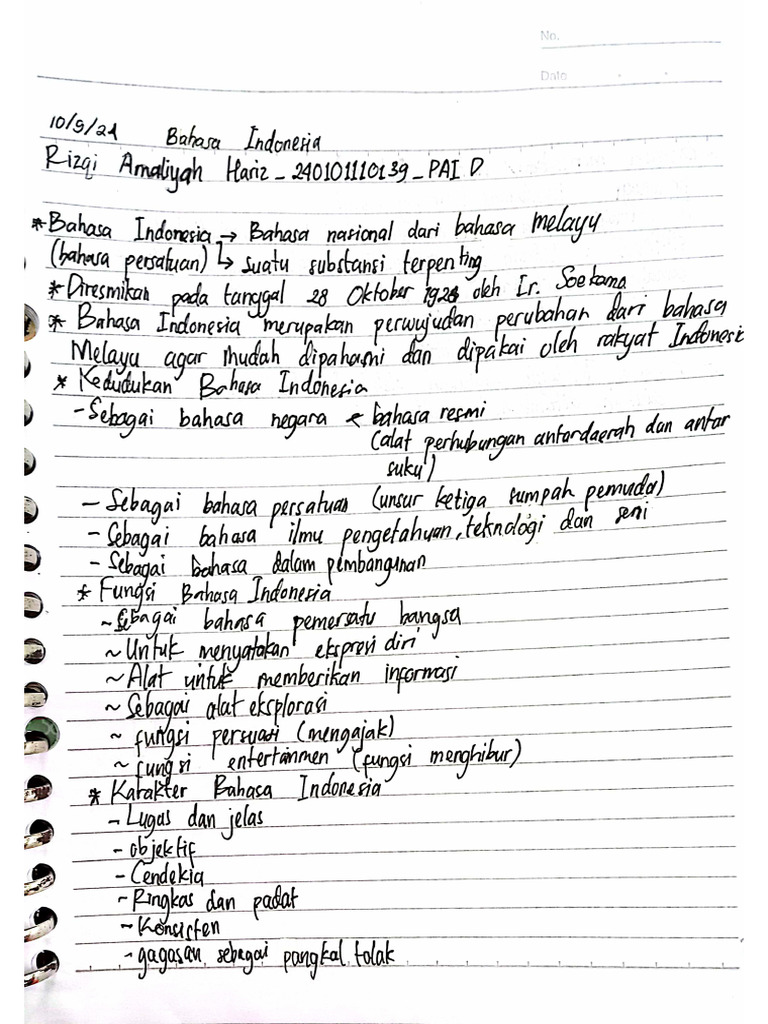 No.
Date
10/9/24 Bahasa Indonesia
Rizqi Amaliyah Hariz_240101110139_PAI D
* Bahasa Indonesia → Bahasa nasional dari bahasa melayu
(bahasa persatuan) ↳ suatu substansi terpenting
* Diresmikan pada tanggal 28 Oktober 1928 oleh Ir. Soekarno
* Bahasa Indonesia merupakan perwujudan perubahan dari bahasa
Melayu agar mudah dipahami dan dipakai oleh rakyat Indonesia
* Kedudukan Bahasa Indonesia
- Sebagai bahasa negara < bahasa resmi
(alat perhubungan antardaerah dan antar
suku)
- Sebagai bahasa persatuan (unsur ketiga sumpah pemuda)
- Sebagai bahasa ilmu pengetahuan, teknologi dan seni
- Sebagai bahasa dalam pembangunan
* Fungsi Bahasa Indonesia
~ Sebagai bahasa pemersatu bangsa
~ Untuk menyatakan ekspresi diri
~ Alat untuk memberikan informasi
~ Sebagai alat eksplorasi
~ fungsi persuasi (mengajak)
~ fungsi entertainmen (fungsi menghibur)
* Karakter Bahasa Indonesia
- Lugas dan jelas
- Objektif
- Cendekia
- Ringkas dan padat
- Konsisten
- gagasan sebagai pangkal tolak